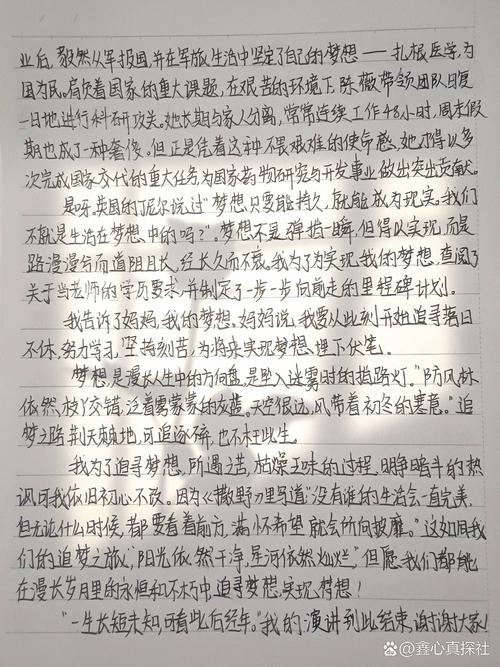 业后,毅然从军报国,并在军旅生活中坚定了自己的梦想——扎根医学,为
国为民。肩负着国家的重大课题,在艰苦的环境下,陈薇带领团队日复
一日地进行科研攻关。她长期与家人分离,常常连续工作48小时,周末假
期也成了一种奢侈。但正是凭着这种不畏艰难的使命感,她才得以多
次完成国家交代的重大任务为国家药物研究与开发事业做出突出贡献。
是呀,英国的丁尼尔说过"梦想只要能持久,就能成为现实。我们
不就是生活在梦想中的吗?"。梦想不是弹指一瞬,但得以实现,而是
路漫漫兮而道阻且长,经长久而不衰。我为了为实现我的梦想,查阅了
关于当老师的学历要求,并制定了一步一步向前走的里程碑计划。
我告诉了妈妈,我的梦想。妈妈说,我要从此刻开始追寻落日
不休,努力学习,坚持刻苦,为将来实现梦想,埋下伏笔。
梦想,是漫长人生中的方向盘,是坠入迷雾时的指路灯。"防风林
依然,枝丫交错,泛着雾蒙蒙的灰蓝。天空很远,风带着初冬的寒意。"追
梦之路荆天棘地,可追逐碎,也不枉此生。
我为了追寻梦想,所遇之苦,枯燥工味的过程,明争暗斗的热
讽,可我依旧初心不改。因为《撒野》里写道"没有谁的生活会一直完美,
但无论什么时候,都要看着前方,满怀希望就会所向披靡。"这如同我
们的追梦之旅,"阳光依然干净,星河依然灿烂。"但愿我们都能
在漫长岁月里的永恒和不朽中,追寻梦想,实现梦想!
"一生长短未知,可看此后经年。"我的演讲到此结束,谢谢大家!
@鑫心真探社